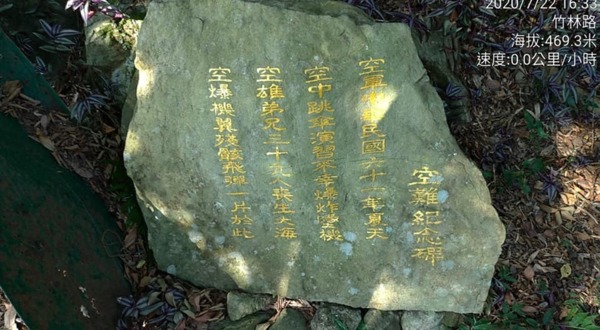 2020/7/22 16:33
竹林路
海拔:469.3米
速度:0.0公里/小時
空難紀念碑
空軍民國六十一年夏天
空中跳傘演習不幸爆炸墜機
空雄弟兄三十九人喪生火海
空爆機翼殘骸飛彈一片於此